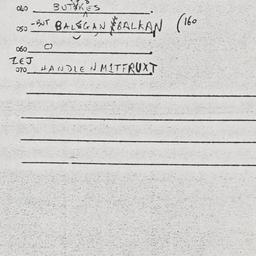 040 BUTYKES
050 -BUT BALOGAN BALKAN (160
060 O
ZEJ
070 HANDLENMITFRUXT